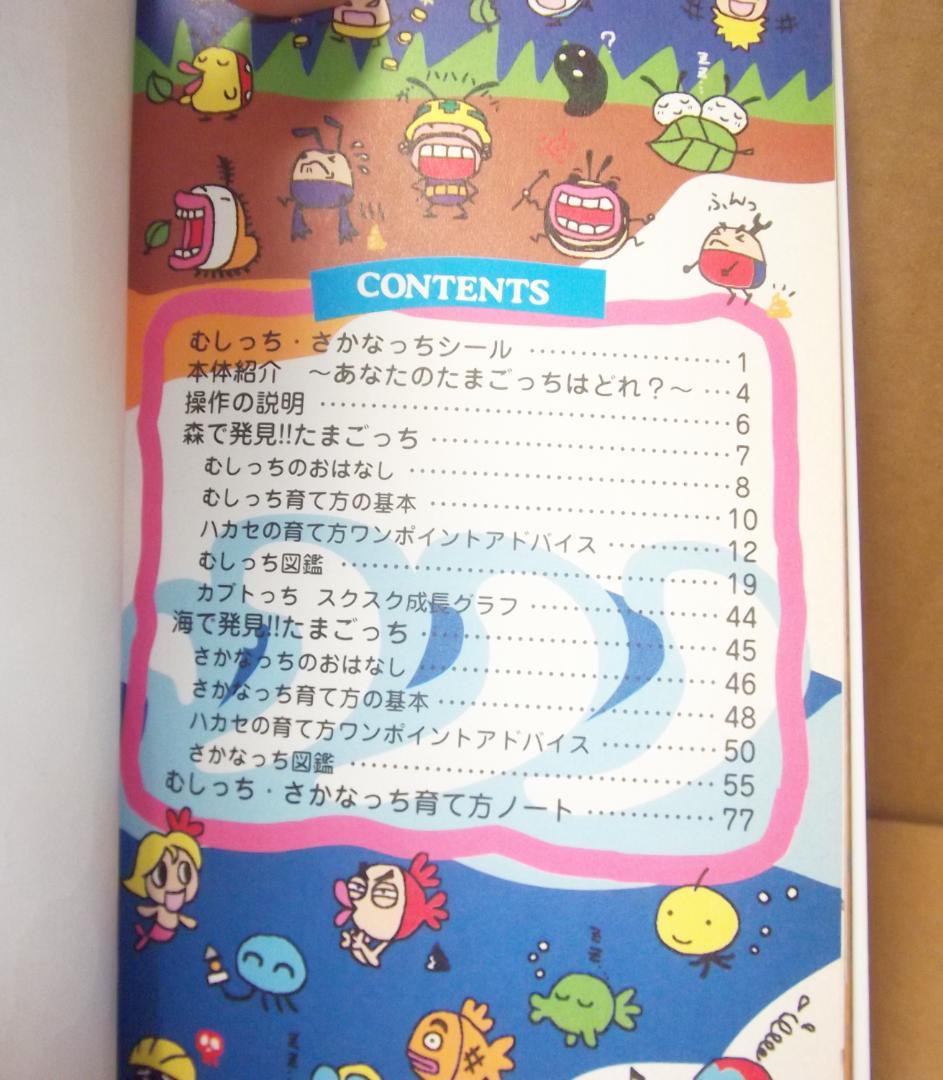 ?
zz
ふんっ
CONTENTS
むしっち・さかなっちシール …………………1
本体紹介 ～あなたのたまごっちはどれ？～ …4
操作の説明 ……………………………………6
森で発見!!たまごっち …………………………7
むしっちのおはなし …………………………8
むしっち育て方の基本 ………………………10
ハカセの育て方ワンポイントアドバイス ………12
むしっち図鑑 …………………………………19
カブトっち スクスク成長グラフ ………………44
海で発見!!たまごっち …………………………45
さかなっちのおはなし ………………………46
さかなっち育て方の基本 ……………………48
ハカセの育て方ワンポイントアドバイス ………50
さかなっち図鑑 ………………………………55
むしっち・さかなっち育て方ノート ……………77
zzz
zz